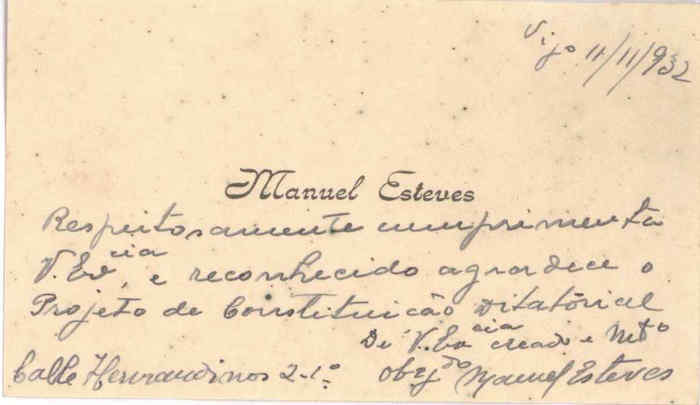 Vigo 11/11/932
Manuel Esteves
Respeitosamente cumprimenta
V. Ex.cia, e reconhecido agradece o
Projeto de Constituição Ditatórial
De V. Ex.cia creado e Mt.o
Calle Hernandinos 2-1.º Obrg.do Manuel Esteves